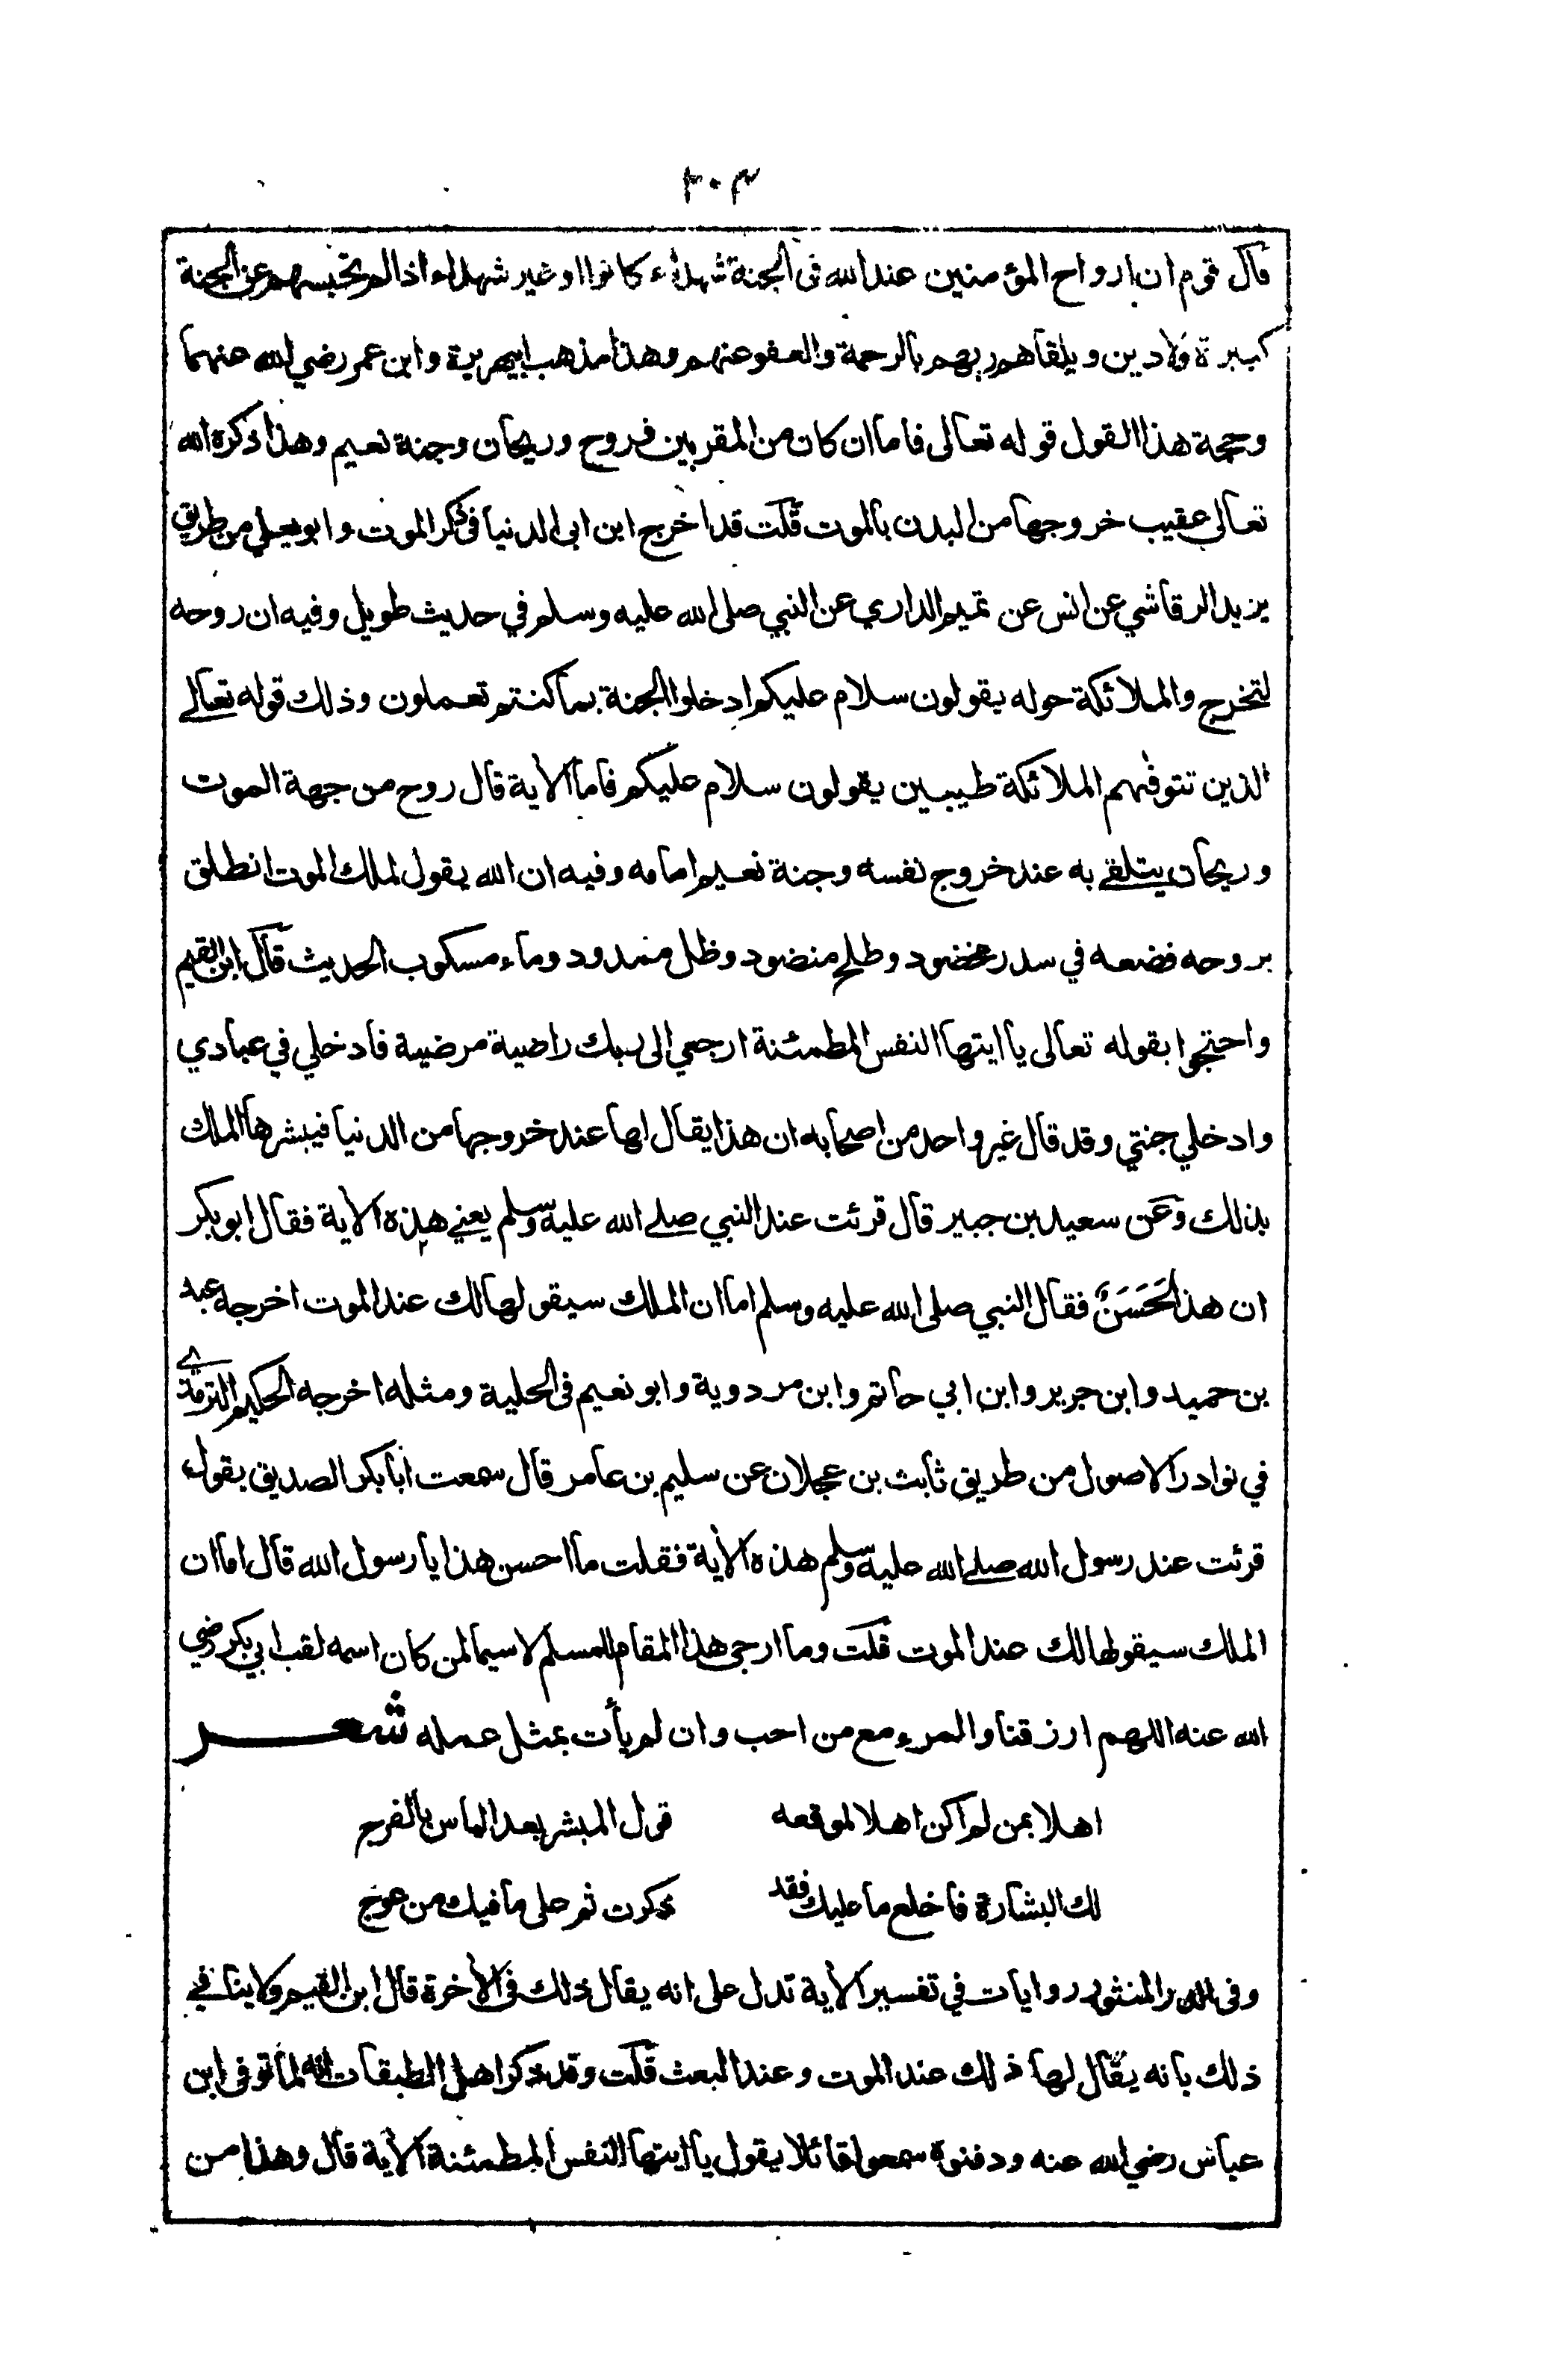 ٣٠٤
قال قوم ان ارواح المؤمنين عند الله فى الجنة شهداء كانوا او غير شهداء اذا لم تحبسهم عن الجنة
كبيرة ولا دين ويلقاهم ربهم بالرحمة والعفو عنهم وهذا مذهب ابيهريرة وابن عمر رضي الله عنهما
وحجة هذا القول قوله تعالى فاما ان كان من المقربين فروح وريحان وجنة نعيم وهذا ذكره الله
تعالى عقيب خروجها من البدن بالموت قلت قد اخرج ابن ابى الدنيا فى ذكر الموت وابو يعلي من طريق
يزيد الرقاشي عن انس عن تميم الداري عن النبي صلى الله عليه وسلم في حديث طويل وفيه ان روحه
لتخرج والملائكة حوله يقولون سلام عليكم ادخلوا الجنة بما كنتم تعملون وذلك قوله تعالے
الذين تتوفهم الملائكة طيبين يقولون سلام عليكم فاما الأية قال روح من جهة الموت
وريحان يتلقے به عند خروج نفسه وجنة نعيم امامه وفيه ان الله يقول لملك الموت انطلق
بروحه فضعه في سدر مخضود وطلح منضود وظل ممدود وماء مسكوب الحديث قال ابن القيم
واحتجوا بقوله تعالى يا ايتها النفس المطمئنة ارجعي الى ربك راضية مرضية فادخلي في عبادي
وادخلي جنتي وقد قال غير واحد من اصحابه ان هذا يقال لها عند خروجها من الدنيا فيبشرها الملك
بذلك وعن سعيد بن جبير قال قرئت عند النبي صلے الله عليه وسلم يعني هذه الأية فقال ابو بكر
ان هذا لَحَسَنٌ فقال النبي صلى الله عليه وسلم اما ان الملك سيقولها لك عند الموت اخرجه عبد
بن حميد وابن جرير وابن ابي حاتم وابن مردوية وابو نعيم فى الحلية ومثله اخرجه الحكيم الترمذے
في نوادر الاصول من طريق ثابت بن عجلان عن سليم بن عامر قال سمعت أبا بكر الصديق يقول
قرئت عند رسول الله صلے الله عليه وسلم هذه الأية فقلت ما احسن هذا يا رسول الله قال اما ان
الملك سيقولها لك عند الموت قلت وما ارجى هذا المقام للمسلم لا سيما لمن كان اسمه لقب ابي بكر رضي
الله عنه اللهم ارزقنا والمرء مع من احب وان لم يأت بمثل عمله شعر
اهلا بمن لم اكن اهلا لموقعه قول المبشر بعد الياس بالفرج
لك البشارة فاخلع ما عليك فقد ذكرت ثم على ما فيك من عوج
وفى الدر المنثور روايات في تفسير الأية تدل على انه يقال ذلك فى الأخرة قال ابن القيم ولا ينافي
ذلك بانه يقال لها ذلك عند الموت وعند البعث قلت وقد ذكر اهل الطبقات انه لما توفى ابن
عباس رضي الله عنه ودفنوه سمعوا قائلا يقول يا ايتها النفس المطمئنة الأية قال وهذا من